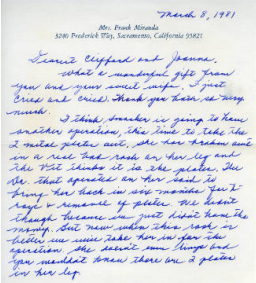 March 8, 1981
Mrs. Frank Miranda
3280 Frederick Way, Sacramento, California 95821
Dearest Clifford and Joanna,
What a wonderful gift from
you and your sweet wife. I just
cried and cried. Thank you both so very
much.
I think Smoker is going to have
another operation, this time to take the
2 metal plates out, she has broken out
in a real bad rash on her leg and
the Vet thinks it is the plates. The
Dr. that operated on her said to
bring her back in six months for X-
rays & removal of plates. We didn't
though because we just didn't have the
money. But now when this rash is
better we will take her in for the
operation. She doesn't even limp and
you wouldn't know there are 2 plates
in her leg.